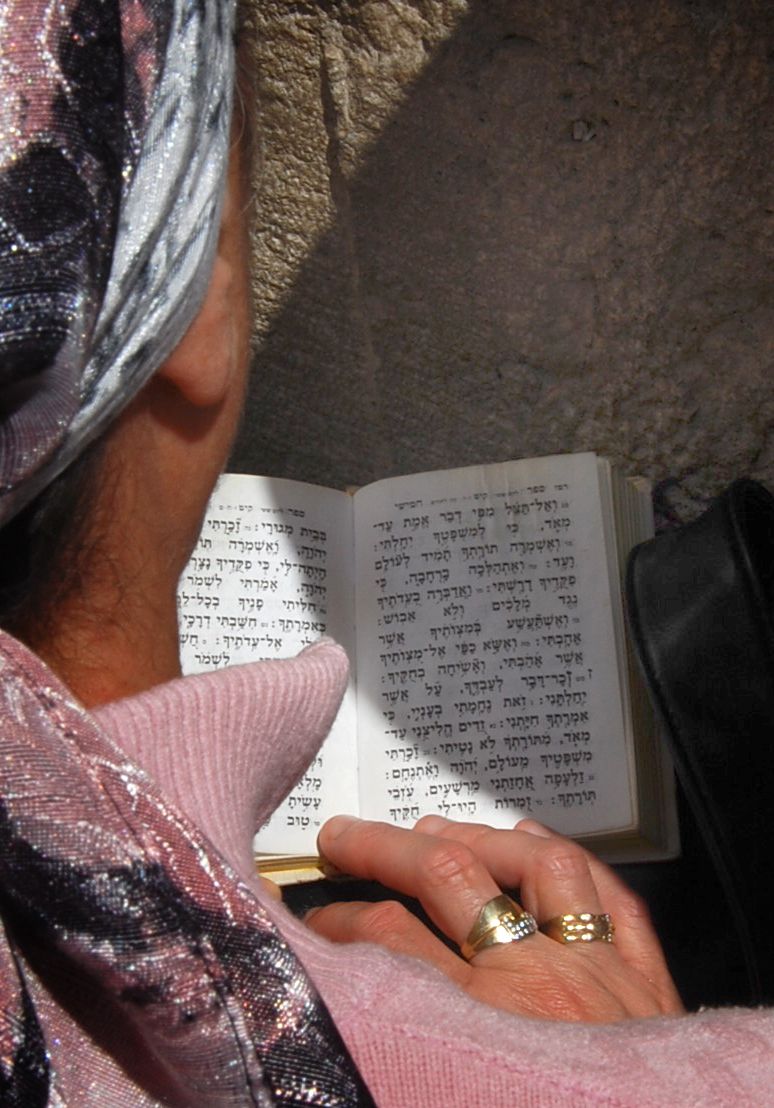 ספר חמישי
וְאַל־תַּצֵּל מִפִּי דְבַר אֱמֶת עַד־
מְאֹד, כִּי לְמִשְׁפָּטֶךָ יִחָלְתִּי׃
וְאֶשְׁמְרָה תוֹרָתְךָ תָמִיד לְעוֹלָם
וָעֶד׃ וְאֶתְהַלְּכָה בָרְחָבָה, כִּי
פִקֻּדֶיךָ דָרָשְׁתִּי׃ וַאֲדַבְּרָה בְעֵדֹתֶיךָ
נֶגֶד מְלָכִים וְלֹא אֵבוֹשׁ׃
וְאֶשְׁתַּעֲשַׁע בְּמִצְוֹתֶיךָ אֲשֶׁר
אָהָבְתִּי׃ וְאֶשָּׂא כַפַּי אֶל־מִצְוֹתֶיךָ
אֲשֶׁר אָהַבְתִּי, וְאָשִׂיחָה בְחֻקֶּיךָ׃
ז זְכָר־דָּבָר לְעַבְדֶּךָ, עַל אֲשֶׁר
יִחַלְתָּנִי׃ זֹאת נֶחָמָתִי בְעָנְיִי, כִּי
אִמְרָתְךָ חִיָּתְנִי׃ זֵדִים הֱלִיצֻנִי עַד־
מְאֹד, מִתּוֹרָתְךָ לֹא נָטִיתִי׃ זָכַרְתִּי
מִשְׁפָּטֶיךָ מֵעוֹלָם, יְהוָה וָאֶתְנֶחָם׃
זַלְעָפָה אֲחָזַתְנִי מֵרְשָׁעִים, עֹזְבֵי
תּוֹרָתֶךָ׃ זְמִרוֹת הָיוּ־לִי חֻקֶּיךָ
ספר
בְּבֵית מְגוּרָי׃ זָכַרְתִּי
יְהוָה, וָאֶשְׁמְרָה
הָיְתָה־לִּי, כִּי פִקֻּדֶיךָ
יְהוָה, אָמַרְתִּי לִשְׁמֹר
חִלִּיתִי פָנֶיךָ בְכָל־
כְּאִמְרָתֶךָ׃ חִשַּׁבְתִּי דְרָכָי
אֶל־עֵדֹתֶיךָ׃
לִשְׁמֹר
עָשִׂיתָ
טוּב